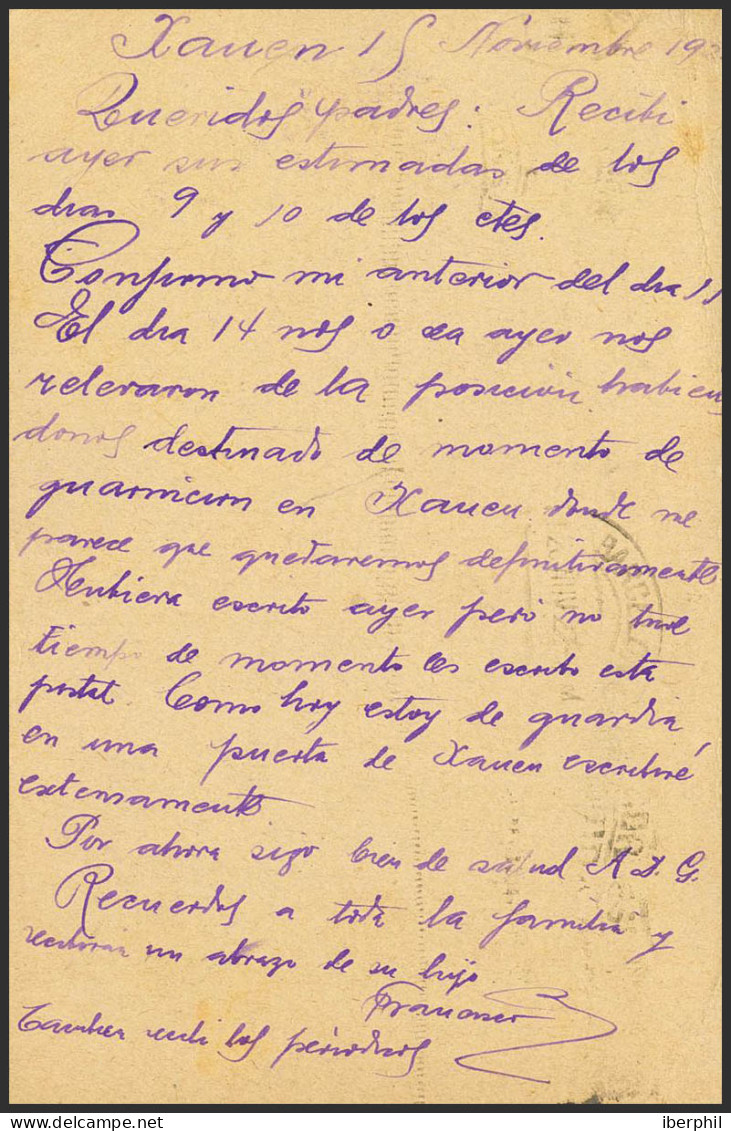 Xauen 15 Noviembre 192
Queridos padres: Recibi
ayer sus estimadas de los
dias 9 y 10 de los ctes.
Confirmo mi anterior del dia 11
El dia 14 nos o sea ayer nos
relevaron de la posicion habien
donos destinado de momento de
guarnicion en Xauen donde me
parece que quedaremos definitivamente
Hubiera escrito ayer pero no tuve
tiempo de momento les escribo esta
postal Como hoy estoy de guardia
en una puerta de Xauen escribiré
extensamente
Por ahora sigo bien de salud A.D.G.
Recuerdos a toda la familia y
recibiran un abrazo de su hijo
Francisco
Tambien recibi los periodicos
BARCEL
iberphil